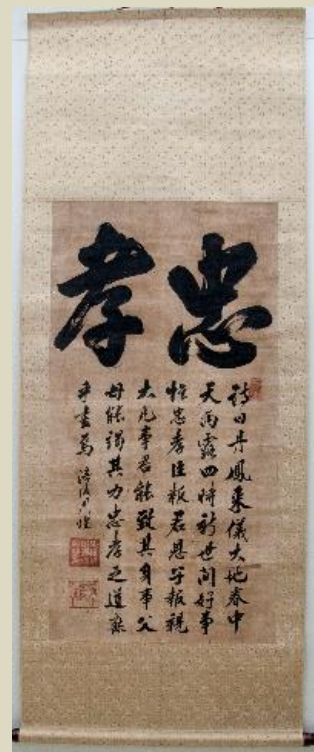 忠孝
詩曰丹鳳來儀大地春中
天雨露四時新世間好事
惟忠孝臣報君恩子報親
大凡事君能致其身事父
母能竭其力忠孝之道庶
乎盡焉